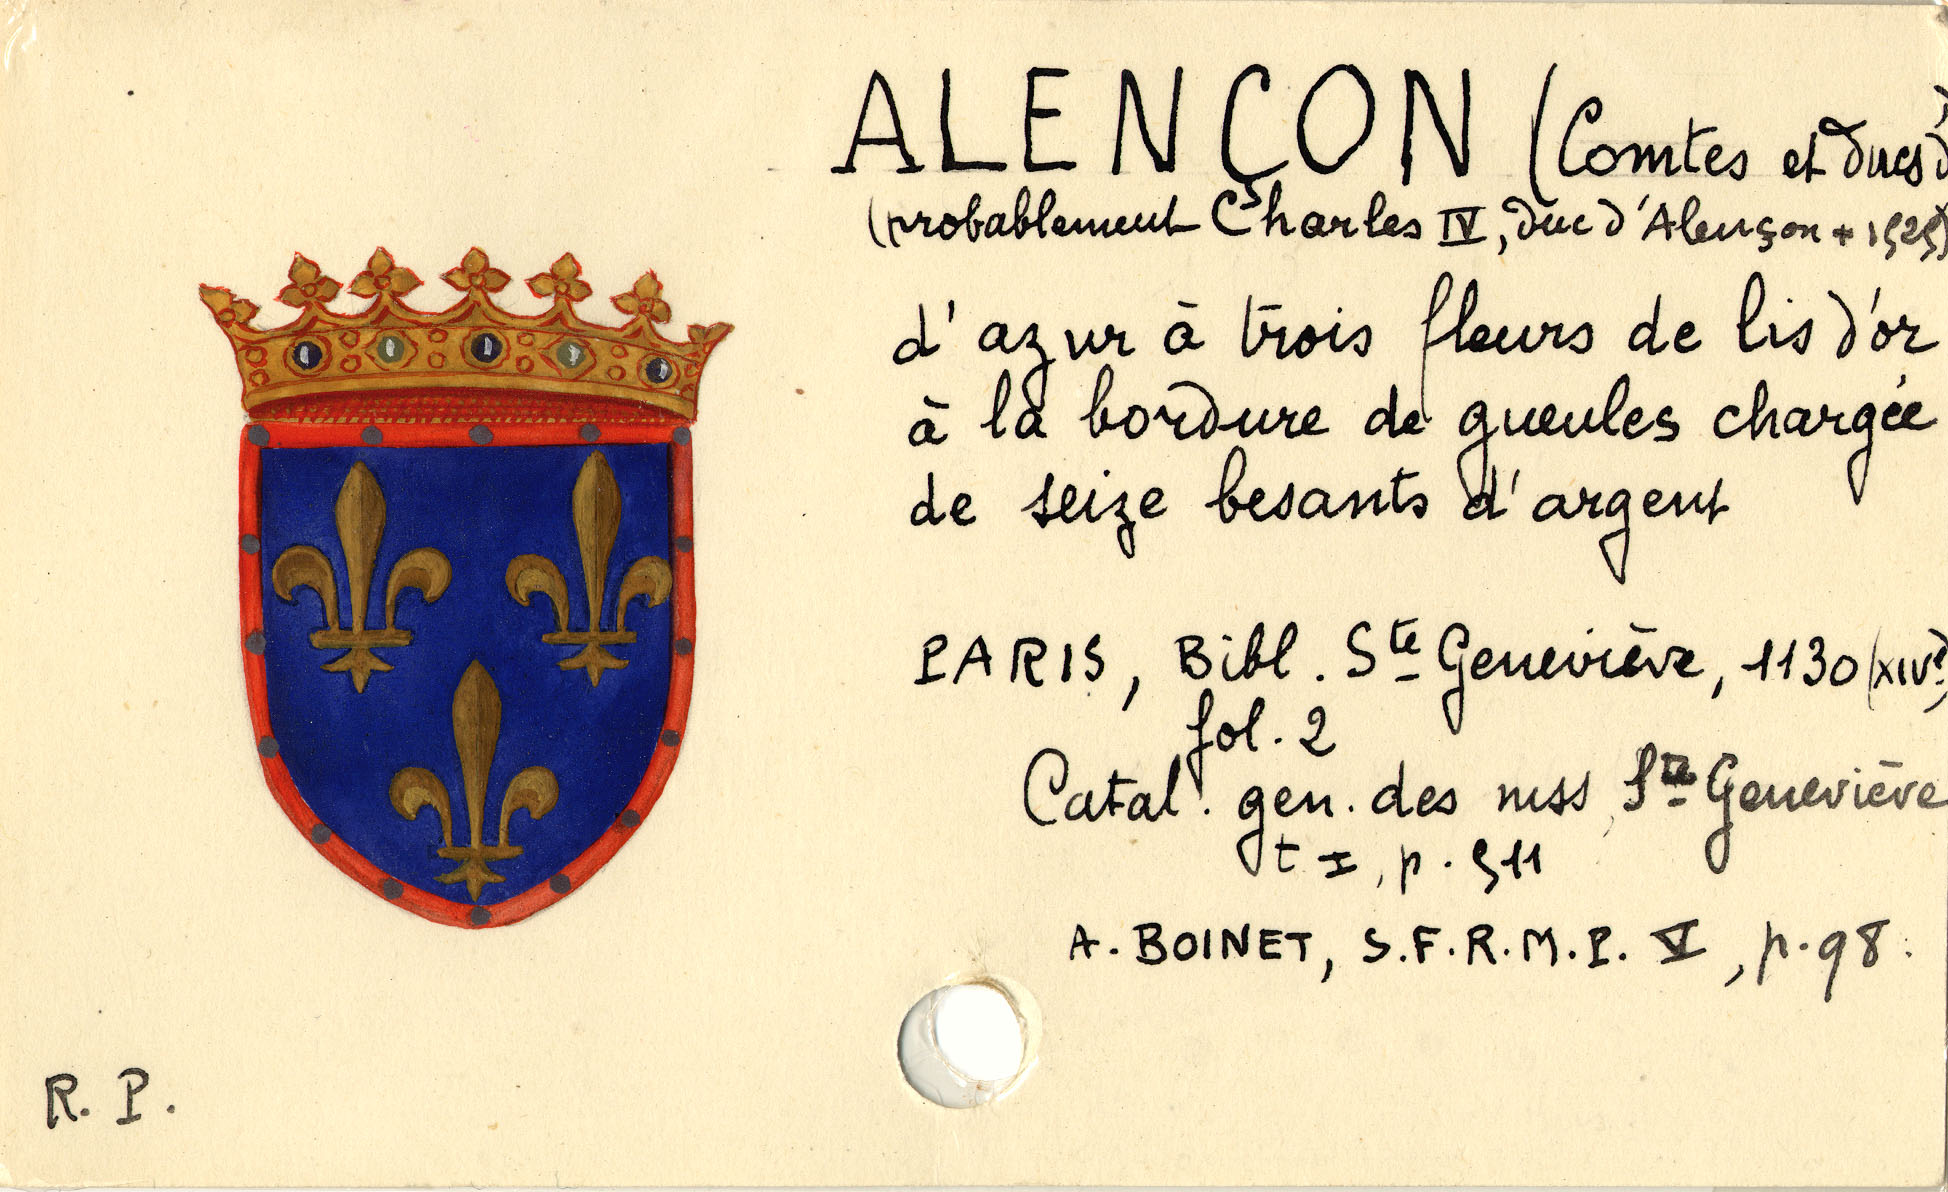 ALENÇON (Comtes et ducs d')
(probablement Charles IV, duc d'Alençon + 1525)
d'azur à trois fleurs de lis d'or
à la bordure de gueules chargée
de seize besants d'argent
PARIS, Bibl. Ste Geneviève, 1130 (XIVe)
fol. 2
Catal. gen. des mss Ste Geneviève
t I, p. 511
A. BOINET, S.F.R.M.P. V, p. 98.
R. P.